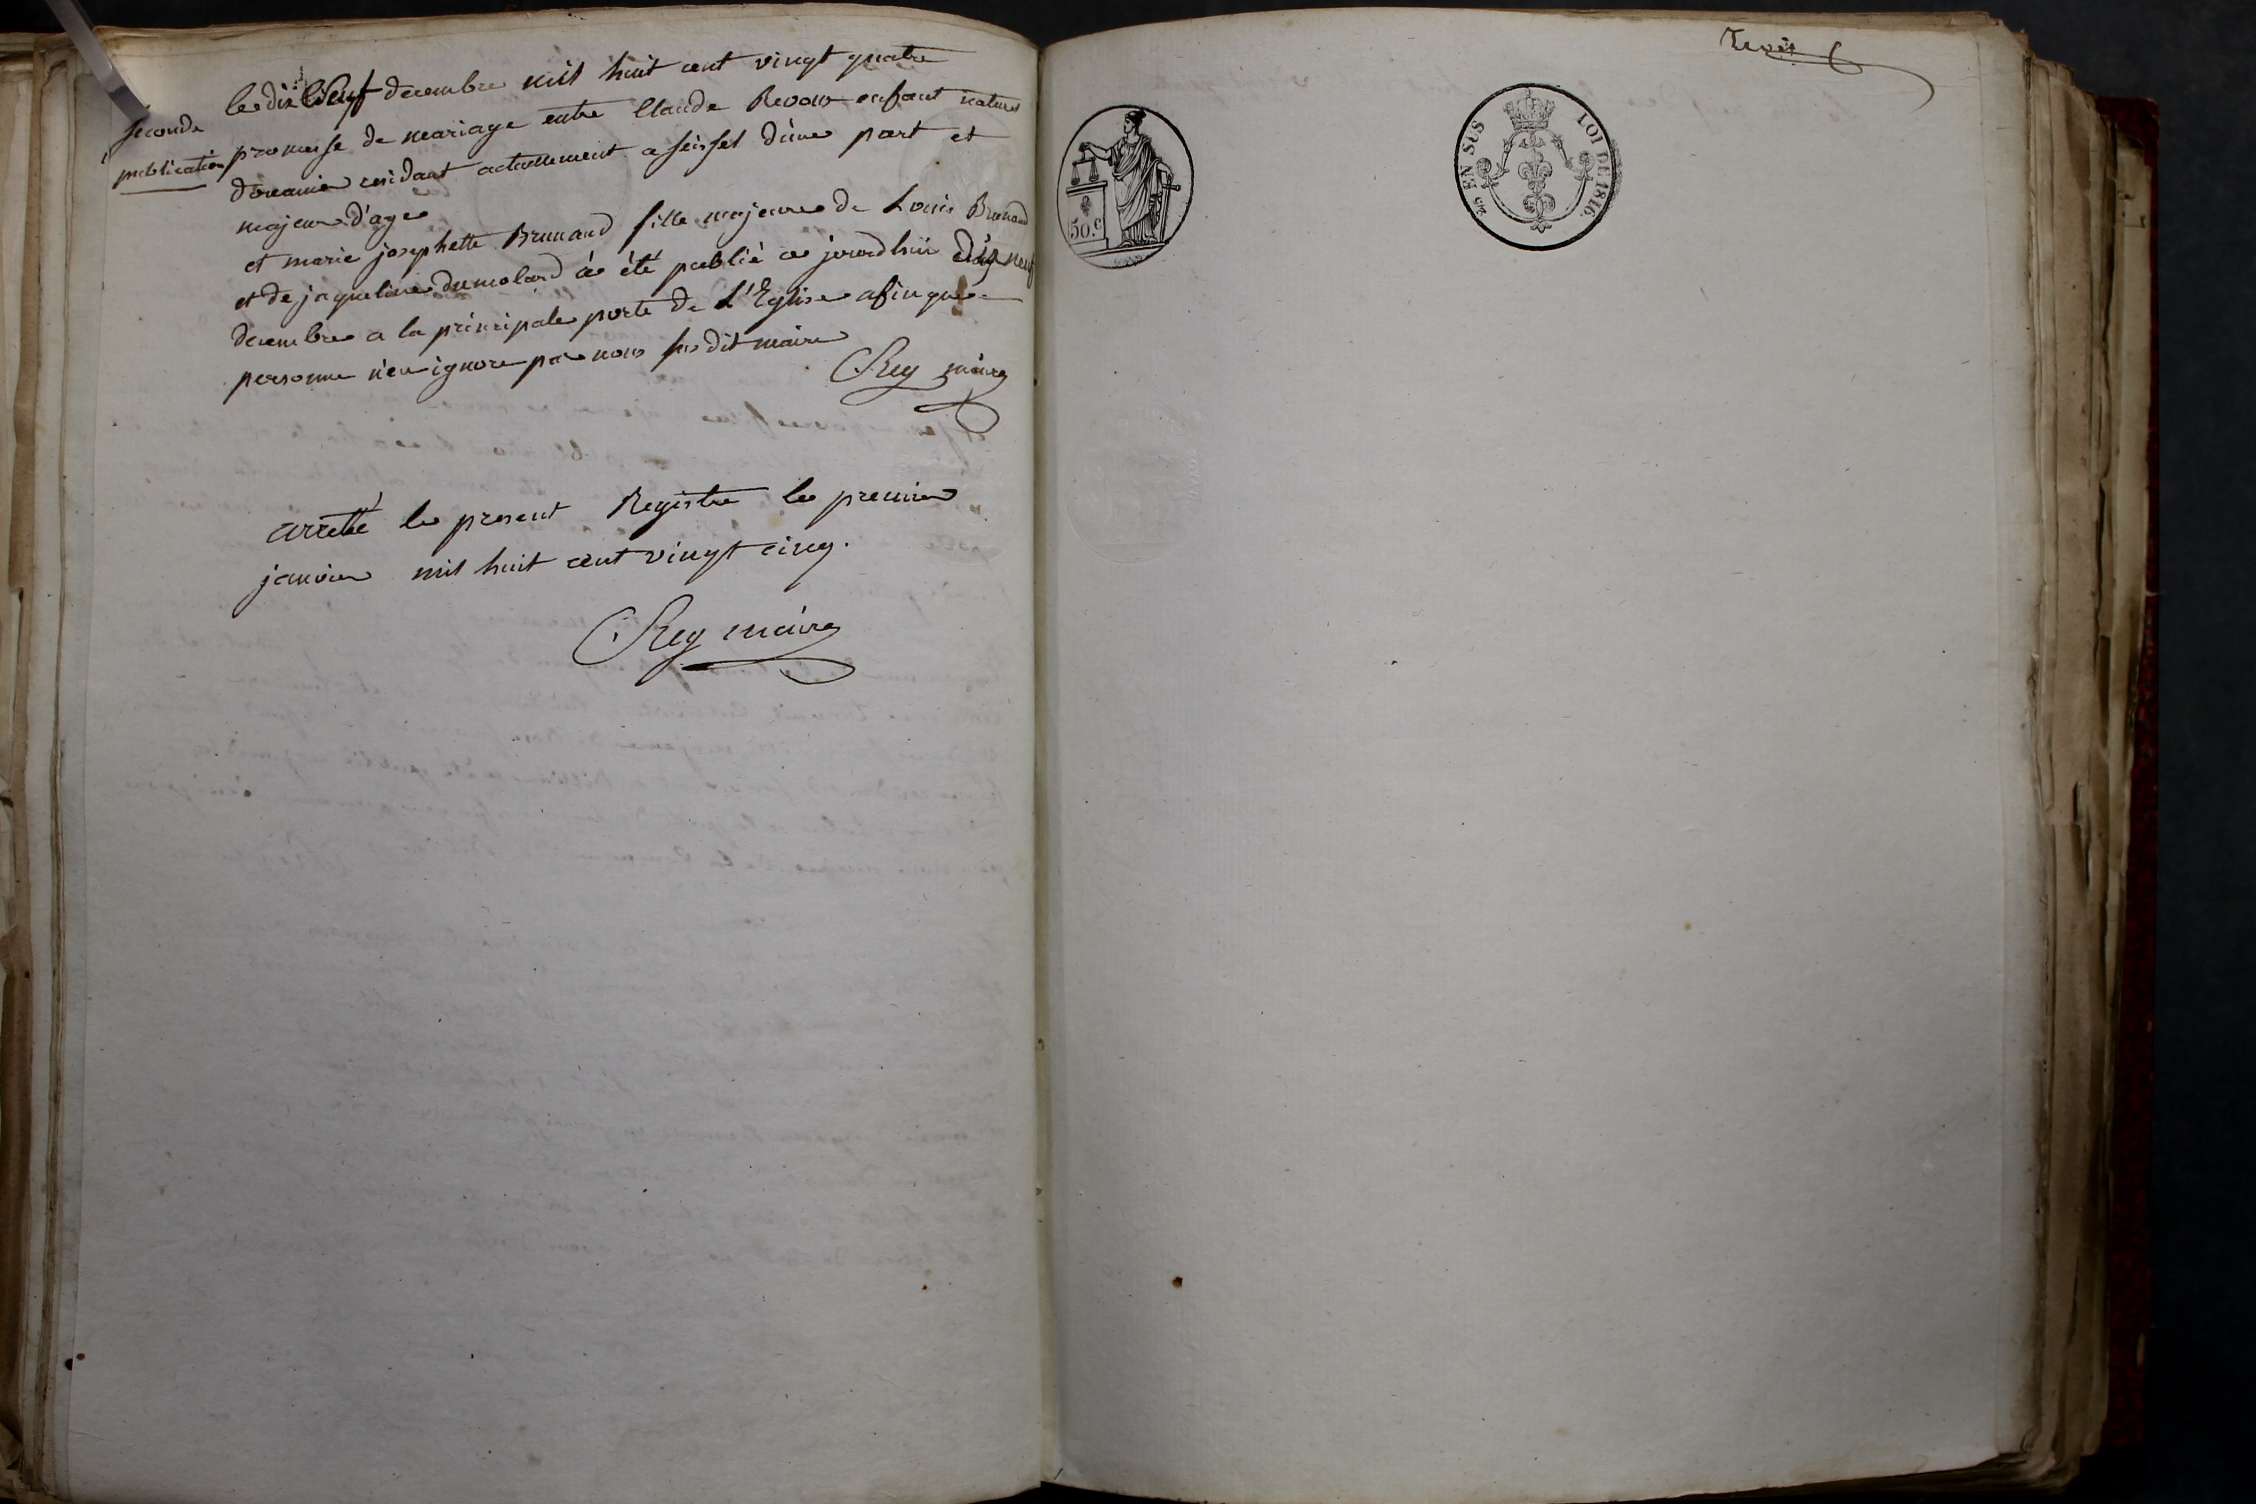 seconde
publication
le dix neuf decembre mil huit cent vingt quatre
promesse de mariage entre Claude Revoux enfant naturel
douanier residant actuellement a seissel d'une part et
majeur d'age
et marie josephette Brunand fille majeure de Louis Brunand
et de jaqueline dumolard à été publié ce jourd'huï dix neuf
decembre a la principale porte de L'Eglise afin que
personne n'en ignore par nous susdit maire
Rey maire
arreté le present Registre le premier
janvier mil huit cent vingt cinq.
Rey maire
trois
50.c
EN SUS
LOI DE 1816.